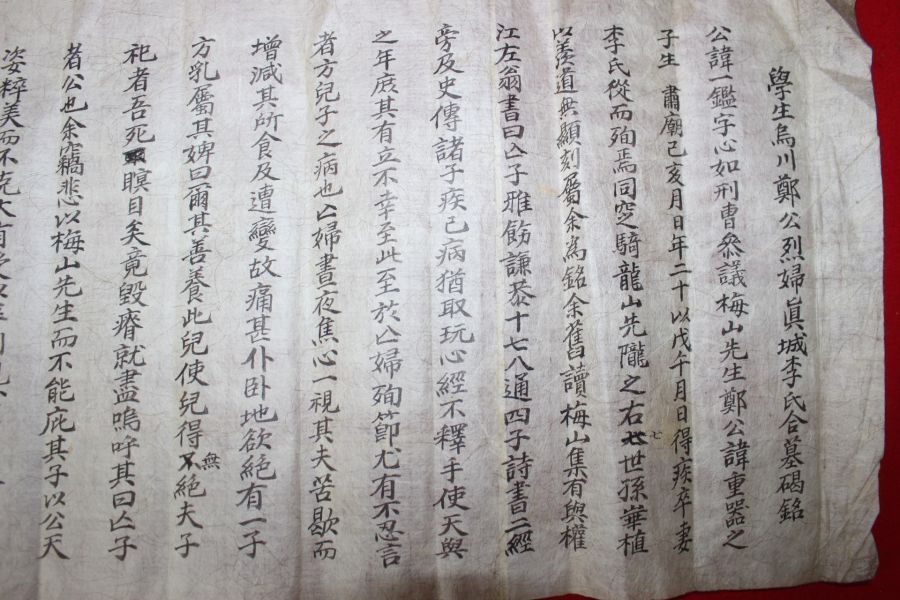 學生烏川鄭公烈婦眞城李氏合墓碣銘
公諱一鑑字心如刑曹叅議梅山先生鄭公諱重器之
子生 肅廟己亥月日年二十以戊午月日得疾卒妻
李氏從而殉焉同窆騎龍山先隴之右七世孫華植
以羨道無顯刻屬余爲銘余舊讀梅山集有與權
江左翁書曰亾子雅飭謙恭十七八通四子詩書二經
旁及史傳諸子疾已病猶取玩心經不釋手使天與
之年庻其有立不幸至此至於亾婦殉節尤有不忍言
者方兒子之病也亾婦晝夜焦心一視其夫苦歇而
增减其所食及遭變故痛甚仆卧地欲絶有一子
方乳屬其婢曰爾其善養此兒使兒得無絶夫子
祀者吾死瞑目矣竟毁瘠就盡嗚呼其曰亾子
者公也余竊悲以梅山先生而不能庇其子以公天
姿粹美而不克大有